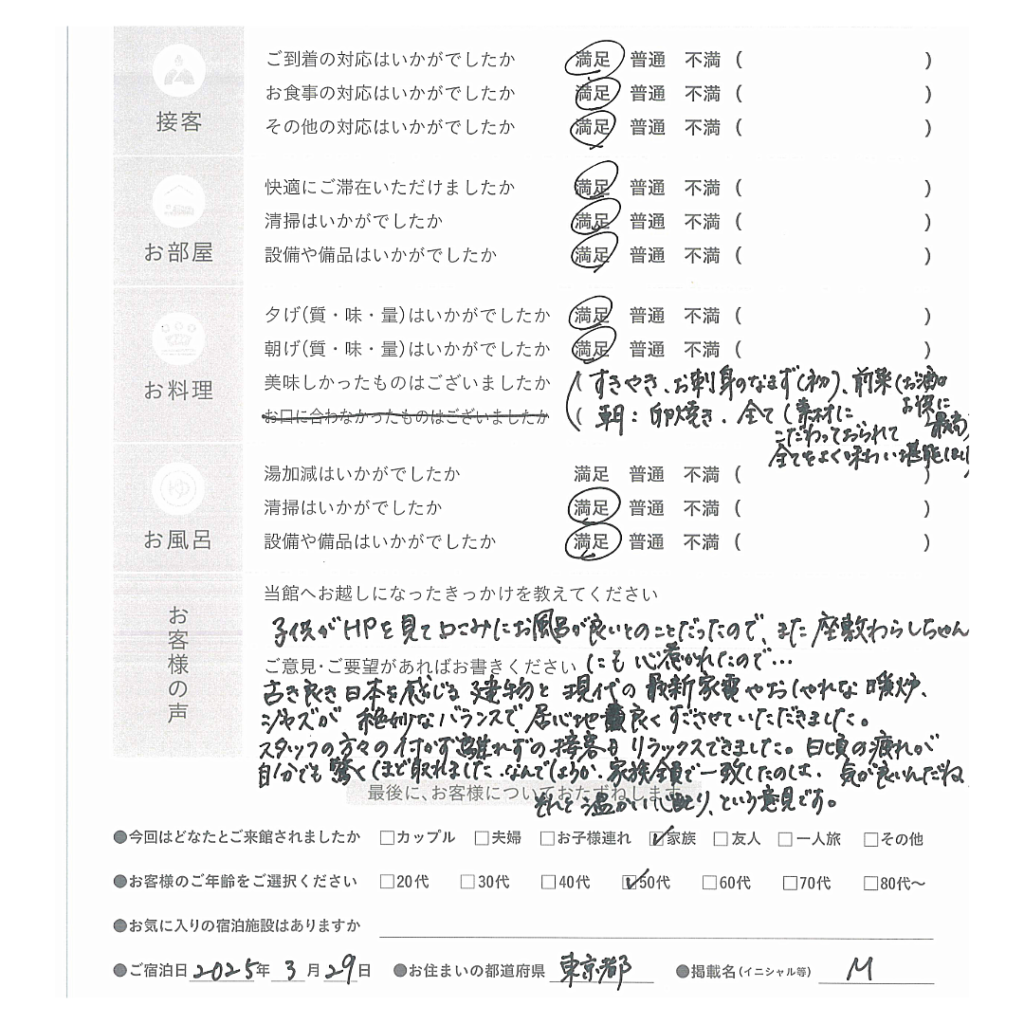 接客
ご到着の対応はいかがでしたか 満足 普通 不満 ( )
お食事の対応はいかがでしたか 満足 普通 不満 ( )
その他の対応はいかがでしたか 満足 普通 不満 ( )
お部屋
快適にご滞在いただけましたか 満足 普通 不満 ( )
清掃はいかがでしたか 満足 普通 不満 ( )
設備や備品はいかがでしたか 満足 普通 不満 ( )
お料理
夕げ(質・味・量)はいかがでしたか 満足 普通 不満 ( )
朝げ(質・味・量)はいかがでしたか 満足 普通 不満 ( )
美味しかったものはございましたか ( すきやき、お刺身のなまず(初)、前菜(お酒の
お供に
最高)
お口に合わなかったものはございましたか ( 朝：卵焼き、全て(素材に
こだわっておられて
全てをよく味わい堪能しました
お風呂
湯加減はいかがでしたか 満足 普通 不満 ( )
清掃はいかがでしたか 満足 普通 不満 ( )
設備や備品はいかがでしたか 満足 普通 不満 ( )
お客様の声
当館へお越しになったきっかけを教えてください
子供がHPを見て口こみにお風呂が良いとのことだったので、また座敷わらしちゃん
にも心惹かれたので…
ご意見・ご要望があればお書きください
古き良き日本を感じる建物と現代の最新家電やおしゃれな暖炉、
ジャズが絶妙なバランスで、居心地良くすごさせていただきました。
スタッフの方々の付かず離れずの接客もリラックスできました。日頃の疲れが
自分でも驚くほど取れました。なんでしょうか、家族全員で一致したのは、気が良いんだね
それと温かい心配り、という意見です。
最後に、お客様についておたずねします
●今回はどなたとご来館されましたか □カップル □夫婦 □お子様連れ ☑家族 □友人 □一人旅 □その他
●お客様のご年齢をご選択ください □20代 □30代 □40代 ☑50代 □60代 □70代 □80代〜
●お気に入りの宿泊施設はありますか
●ご宿泊日 2025年 3月29日 ●お住まいの都道府県 東京都 ●掲載名(イニシャル等) M